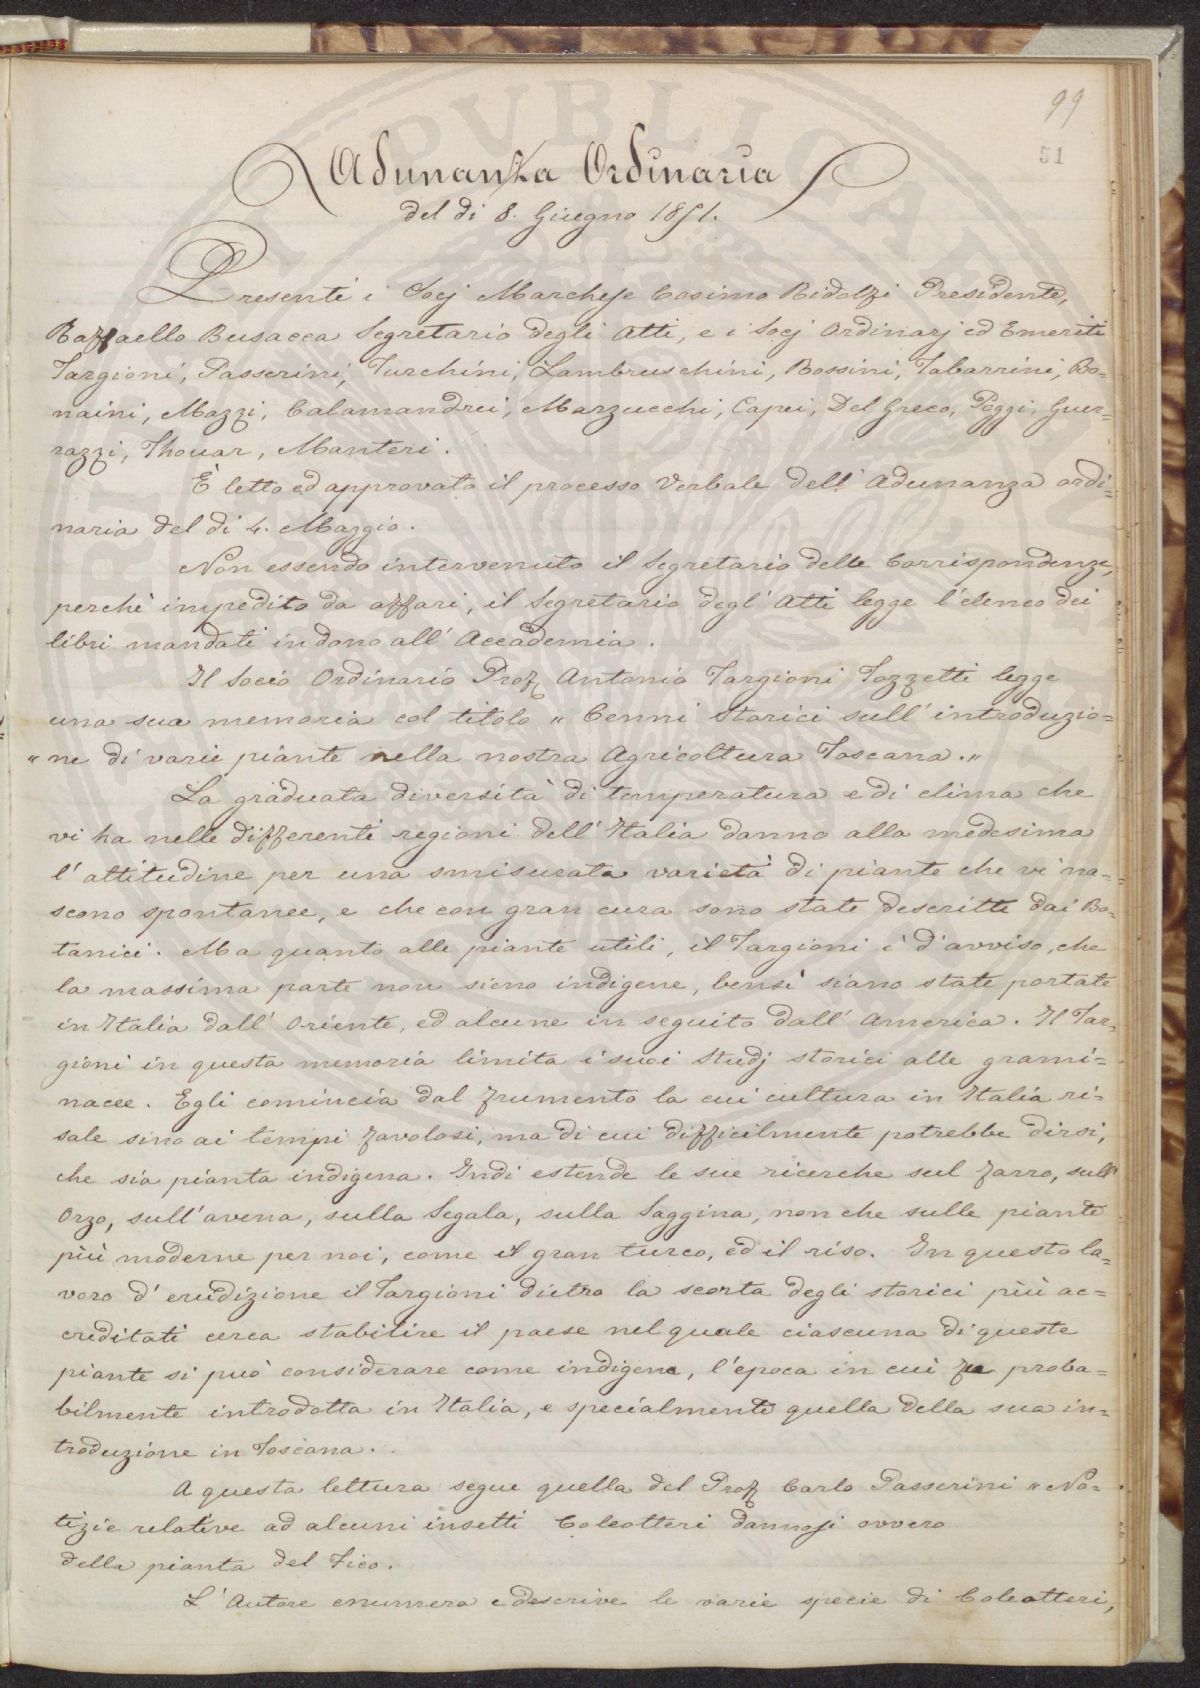 99
51
Adunanza Ordinaria
del di 8. Giugno 1851.
Presenti i Socj Marchese Cosimo Ridolfi Presidente,
Raffaello Busacca Segretario degli Atti, e i Socj Ordinarj ed Emeriti
Targioni, Passerini, Turchini, Lambruschini, Bossini, Tabarrini, Bo=
naini, Mazzi, Calamandrei, Marzucchi, Capei, Del Greco, Poggi, Guer=
razzi, Thouar, Manteri.
È letto ed approvato il processo Verbale dell' Adunanza ordi=
naria del di 4. Maggio.
Non essendo intervenuto il Segretario delle Corrispondenze,
perchè impedito da affari, il Segretario degl' Atti legge l'elenco dei
libri mandati in dono all' Accademia.
Il Socio Ordinario Prof. Antonio Targioni Tozzetti legge
una sua memoria col titolo " Cenni Storici sull' introduzio=
" ne di varie piante nella nostra Agricoltura Toscana. "
La graduata diversità di temperatura e di clima che
vi ha nelle differenti regioni dell' Italia danno alla medesima
l' attitudine per una smisurata varietà di piante che vi na=
scono spontanee, e che con gran cura sono state descritte dai Bo=
tanici. Ma quanto alle piante utili, il Targioni è d'avviso, che
la massima parte non sieno indigene, bensì siano state portate
in Italia dall' Oriente, ed alcune in seguito dall' America. Il Tar=
gioni in questa memoria limita i suoi Studj storici alle grami=
nacee. Egli comincia dal frumento la cui cultura in Italia ri=
sale sino ai tempi favolosi, ma di cui difficilmente potrebbe dirsi,
che sia pianta indigena. Indi estende le sue ricerche sul farro, sull'
Orzo, sull' avena, sulla Segala, sulla Saggina, non che sulle piante
più moderne per noi, come il gran turco, ed il riso. In questo la=
voro d' erudizione il Targioni dietro la scorta degli storici più ac=
creditati cerca stabilire il paese nel quale ciascuna di queste
piante si può considerare come indigena, l'epoca in cui fu proba=
bilmente introdotta in Italia, e specialmente quella della sua in=
troduzione in Toscana.
A questa lettura segue quella del Prof. Carlo Passerini " No=
tizie relative ad alcuni insetti Coleotteri dannosi ovvero
della pianta del Fico.
L' Autore enumera e descrive le varie specie di Coleotteri,